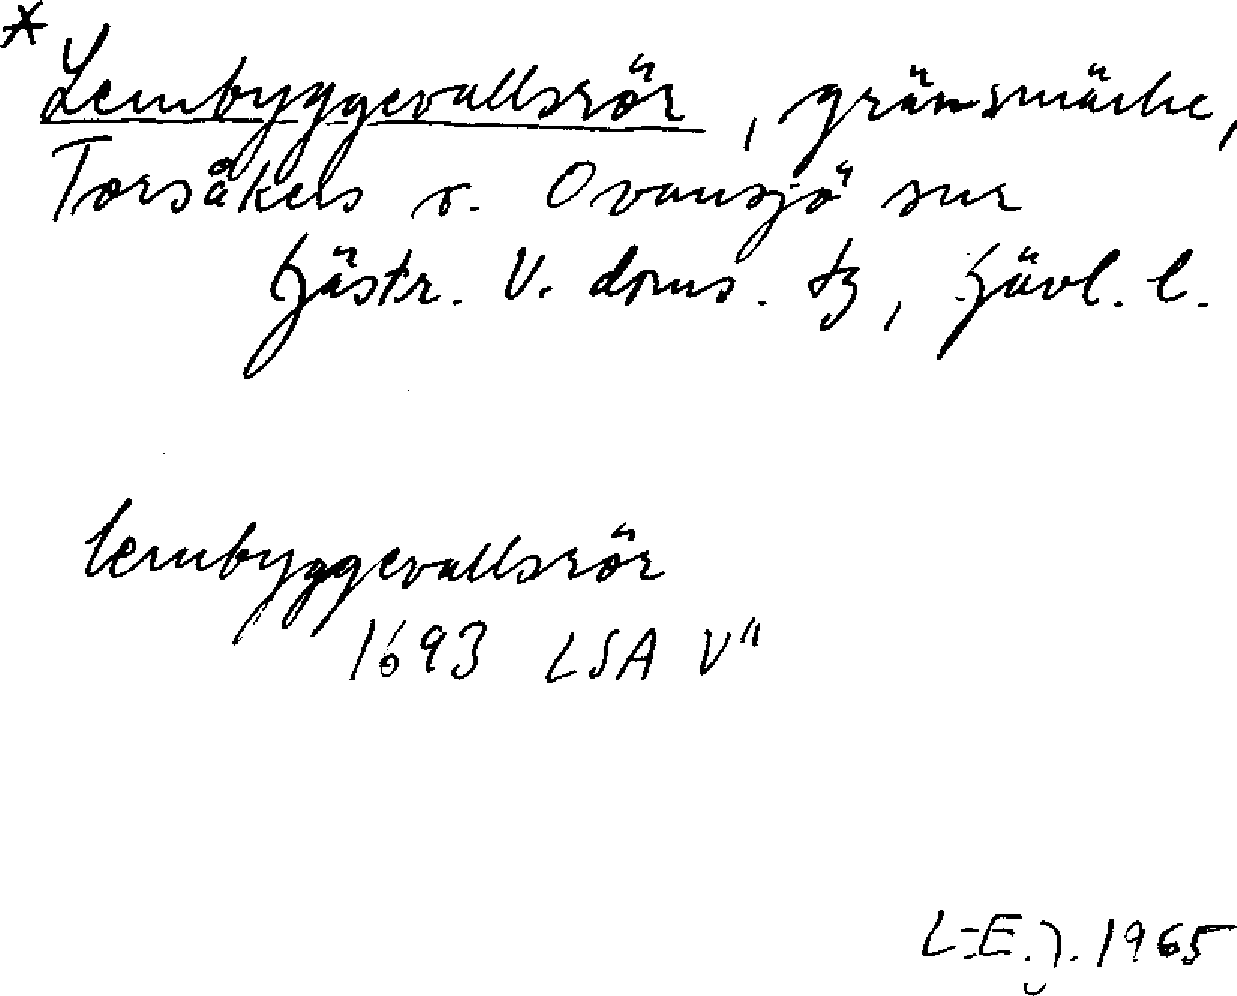 *
Lernbyggevallsrör, gränsmärke,
Torsåkers o. Ovansjö snr
Gästr. V. doms. tg, Gävl. l.
lernbyggevallsrör
1693 LSA V"
L-E. J. 1965